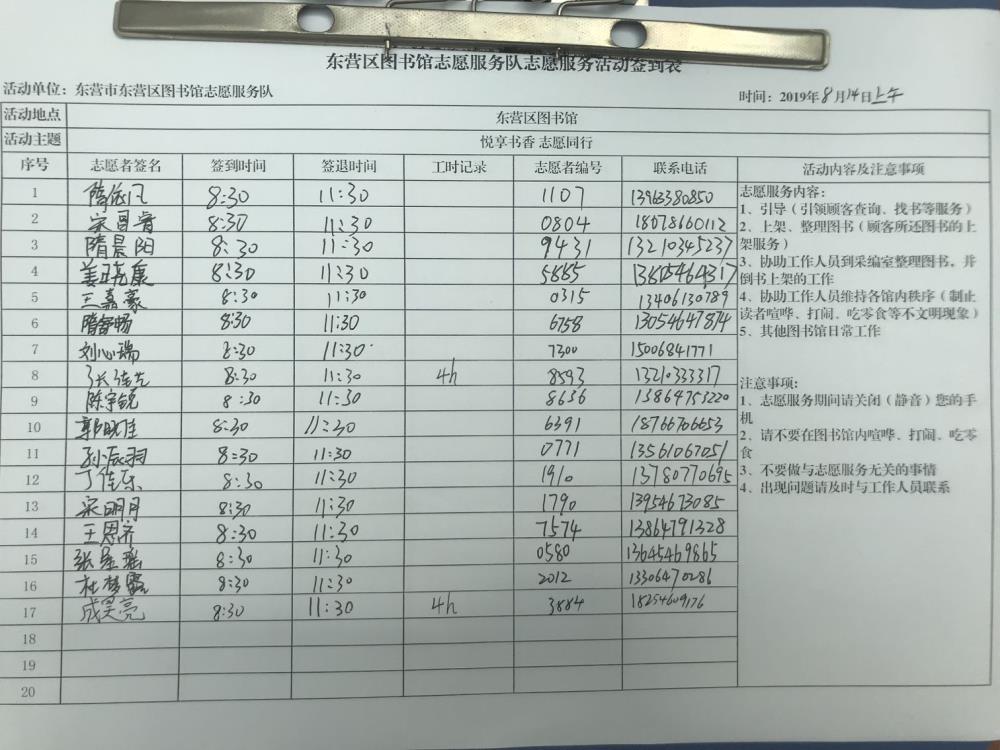 东营区图书馆志愿服务队志愿服务活动签到表
活动单位：东营市东营区图书馆志愿服务队 时间：2019年8月14日上午
活动地点 东营区图书馆
活动主题 悦享书香 志愿同行
序号 志愿者签名 签到时间 签退时间 工时记录 志愿者编号 联系电话 活动内容及注意事项
1 隋依凡 8:30 11:30 1107 13963380850
2 宋昌睿 8:30 11:30 0804 18678660112
3 隋晨阳 8:30 11:30 9431 13210345237
4 姜晓康 8:30 11:30 5885 13805464317
5 王嘉豪 8:30 11:30 0315 13406130789
6 隋舒畅 8:30 11:30 6758 13054647874
7 刘心瑞 8:30 11:30 7300 15006841771
8 张佳先 8:30 11:30 4h 8593 13210333317
9 陈宇锐 8:30 11:30 8636 13864753220
10 郭晓佳 8:30 11:30 6391 18766706653
11 孙辰羽 8:30 11:30 0771 13561067051
12 丁佳乐 8:30 11:30 1910 13780770695
13 宋明月 8:30 11:30 1790 13954673085
14 王恩齐 8:30 11:30 7574 13864791328
15 张星瑶 8:30 11:30 0580 13645469865
16 杜梦露 8:30 11:30 2012 13306470286
17 成昊亮 8:30 11:30 4h 3884 18254609176
18
19
20
志愿服务内容：
1、引导（引领顾客查询、找书等服务）
2、上架、整理图书（顾客所还图书的上
架服务）
3、协助工作人员到采编室整理图书，并
倒书上架的工作
4、协助工作人员维持各馆内秩序（制止
读者喧哗、打闹、吃零食等不文明现象）
5、其他图书馆日常工作
注意事项：
1、志愿服务期间请关闭（静音）您的手
机
2、请不要在图书馆内喧哗、打闹、吃零
食
3、不要做与志愿服务无关的事情
4、出现问题请及时与工作人员联系